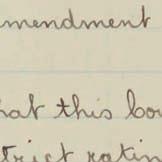 mendment
hat this bor
trict ratin